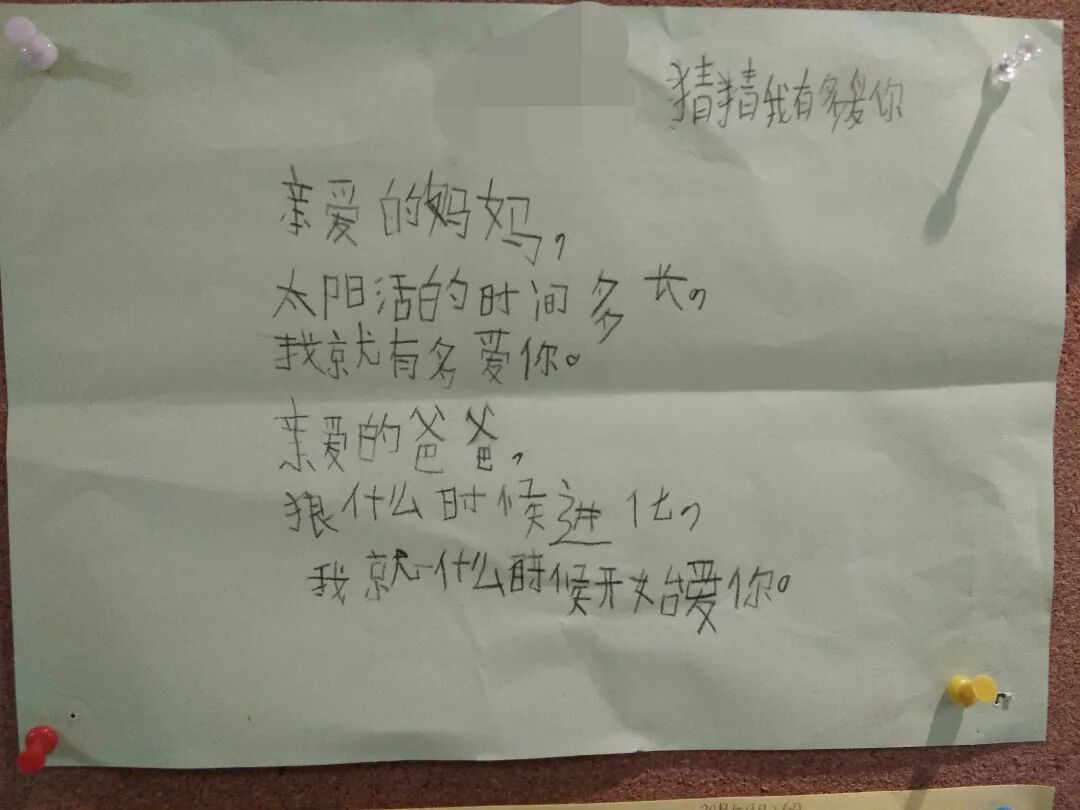 猜猜我有多爱你
亲爱的妈妈，
太阳活的时间多长，
我就有多爱你。
亲爱的爸爸，
狼什么时候进化，
我就什么时候开始爱你。